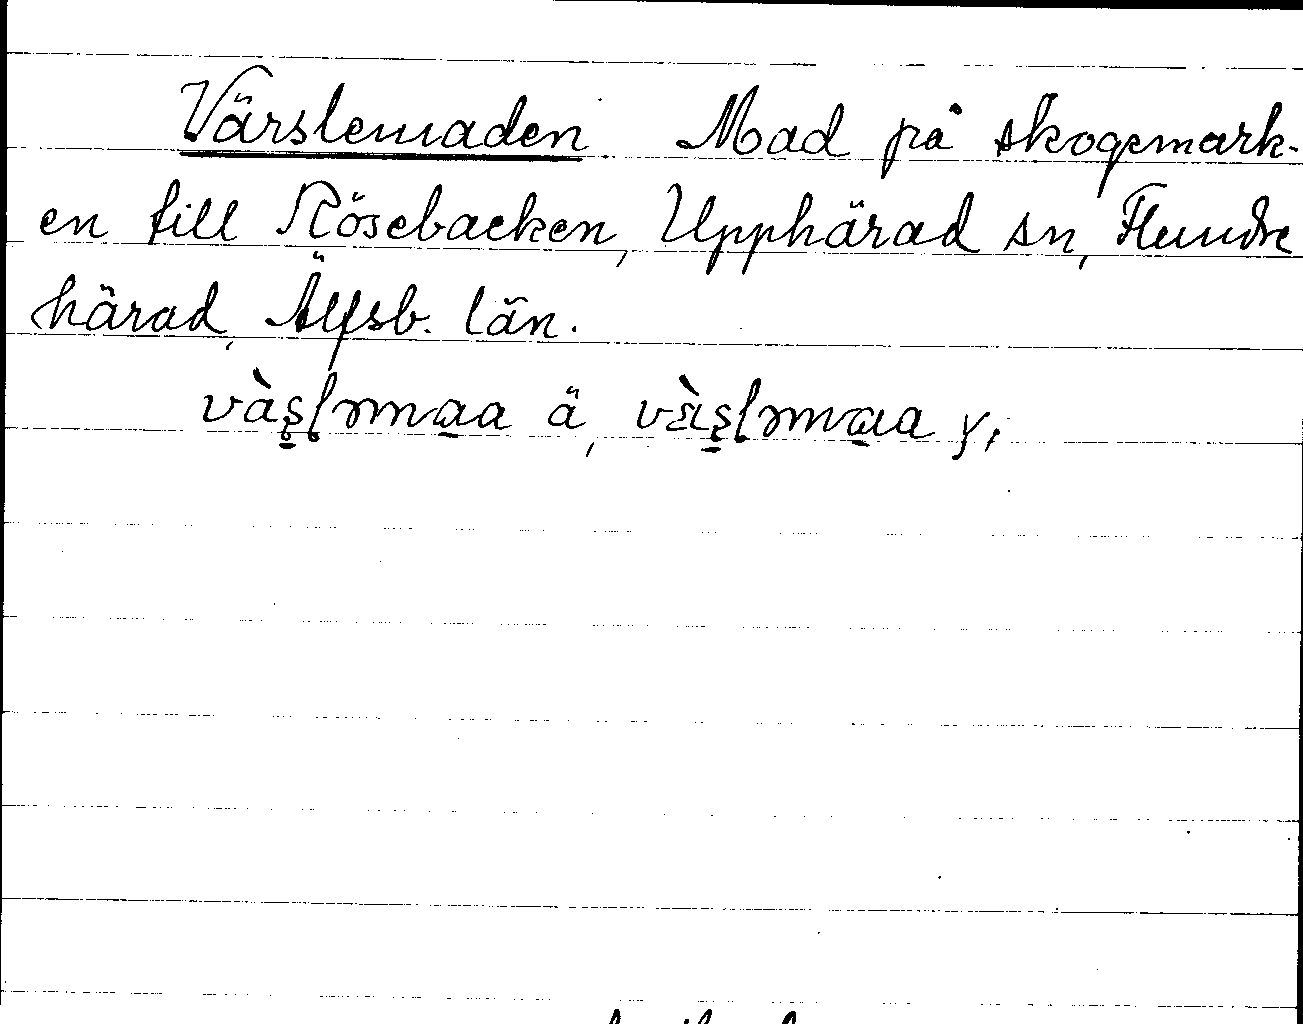 Värslemaden Mad på skogsmark-
en till Rösebacken, Upphärad sn, Flundre
härad, Älfsb. län.
vàs̠ləma̠a ä, vàs̠ləma̠a y,